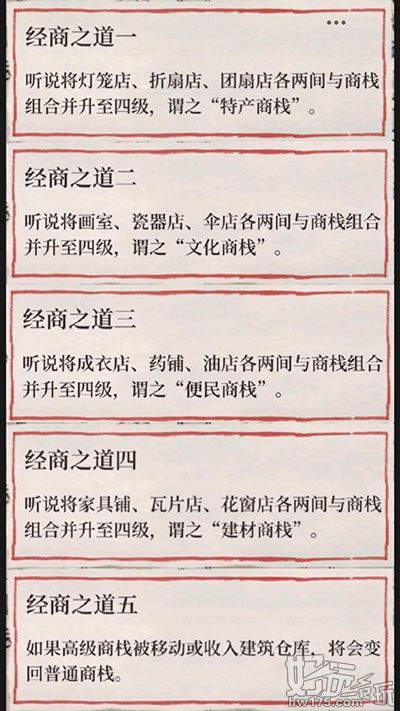 经商之道一
听说将灯笼店、折扇店、团扇店各两间与商栈
组合并升至四级，谓之“特产商栈”。
经商之道二
听说将画室、瓷器店、伞店各两间与商栈组合
并升至四级，谓之“文化商栈”。
经商之道三
听说将成衣店、药铺、油店各两间与商栈组合
并升至四级，谓之“便民商栈”。
经商之道四
听说将家具铺、瓦片店、花窗店各两间与商栈
组合并升至四级，谓之“建材商栈”。
经商之道五
如果高级商栈被移动或收入建筑仓库，将会变
回普通商栈。
hw175.com